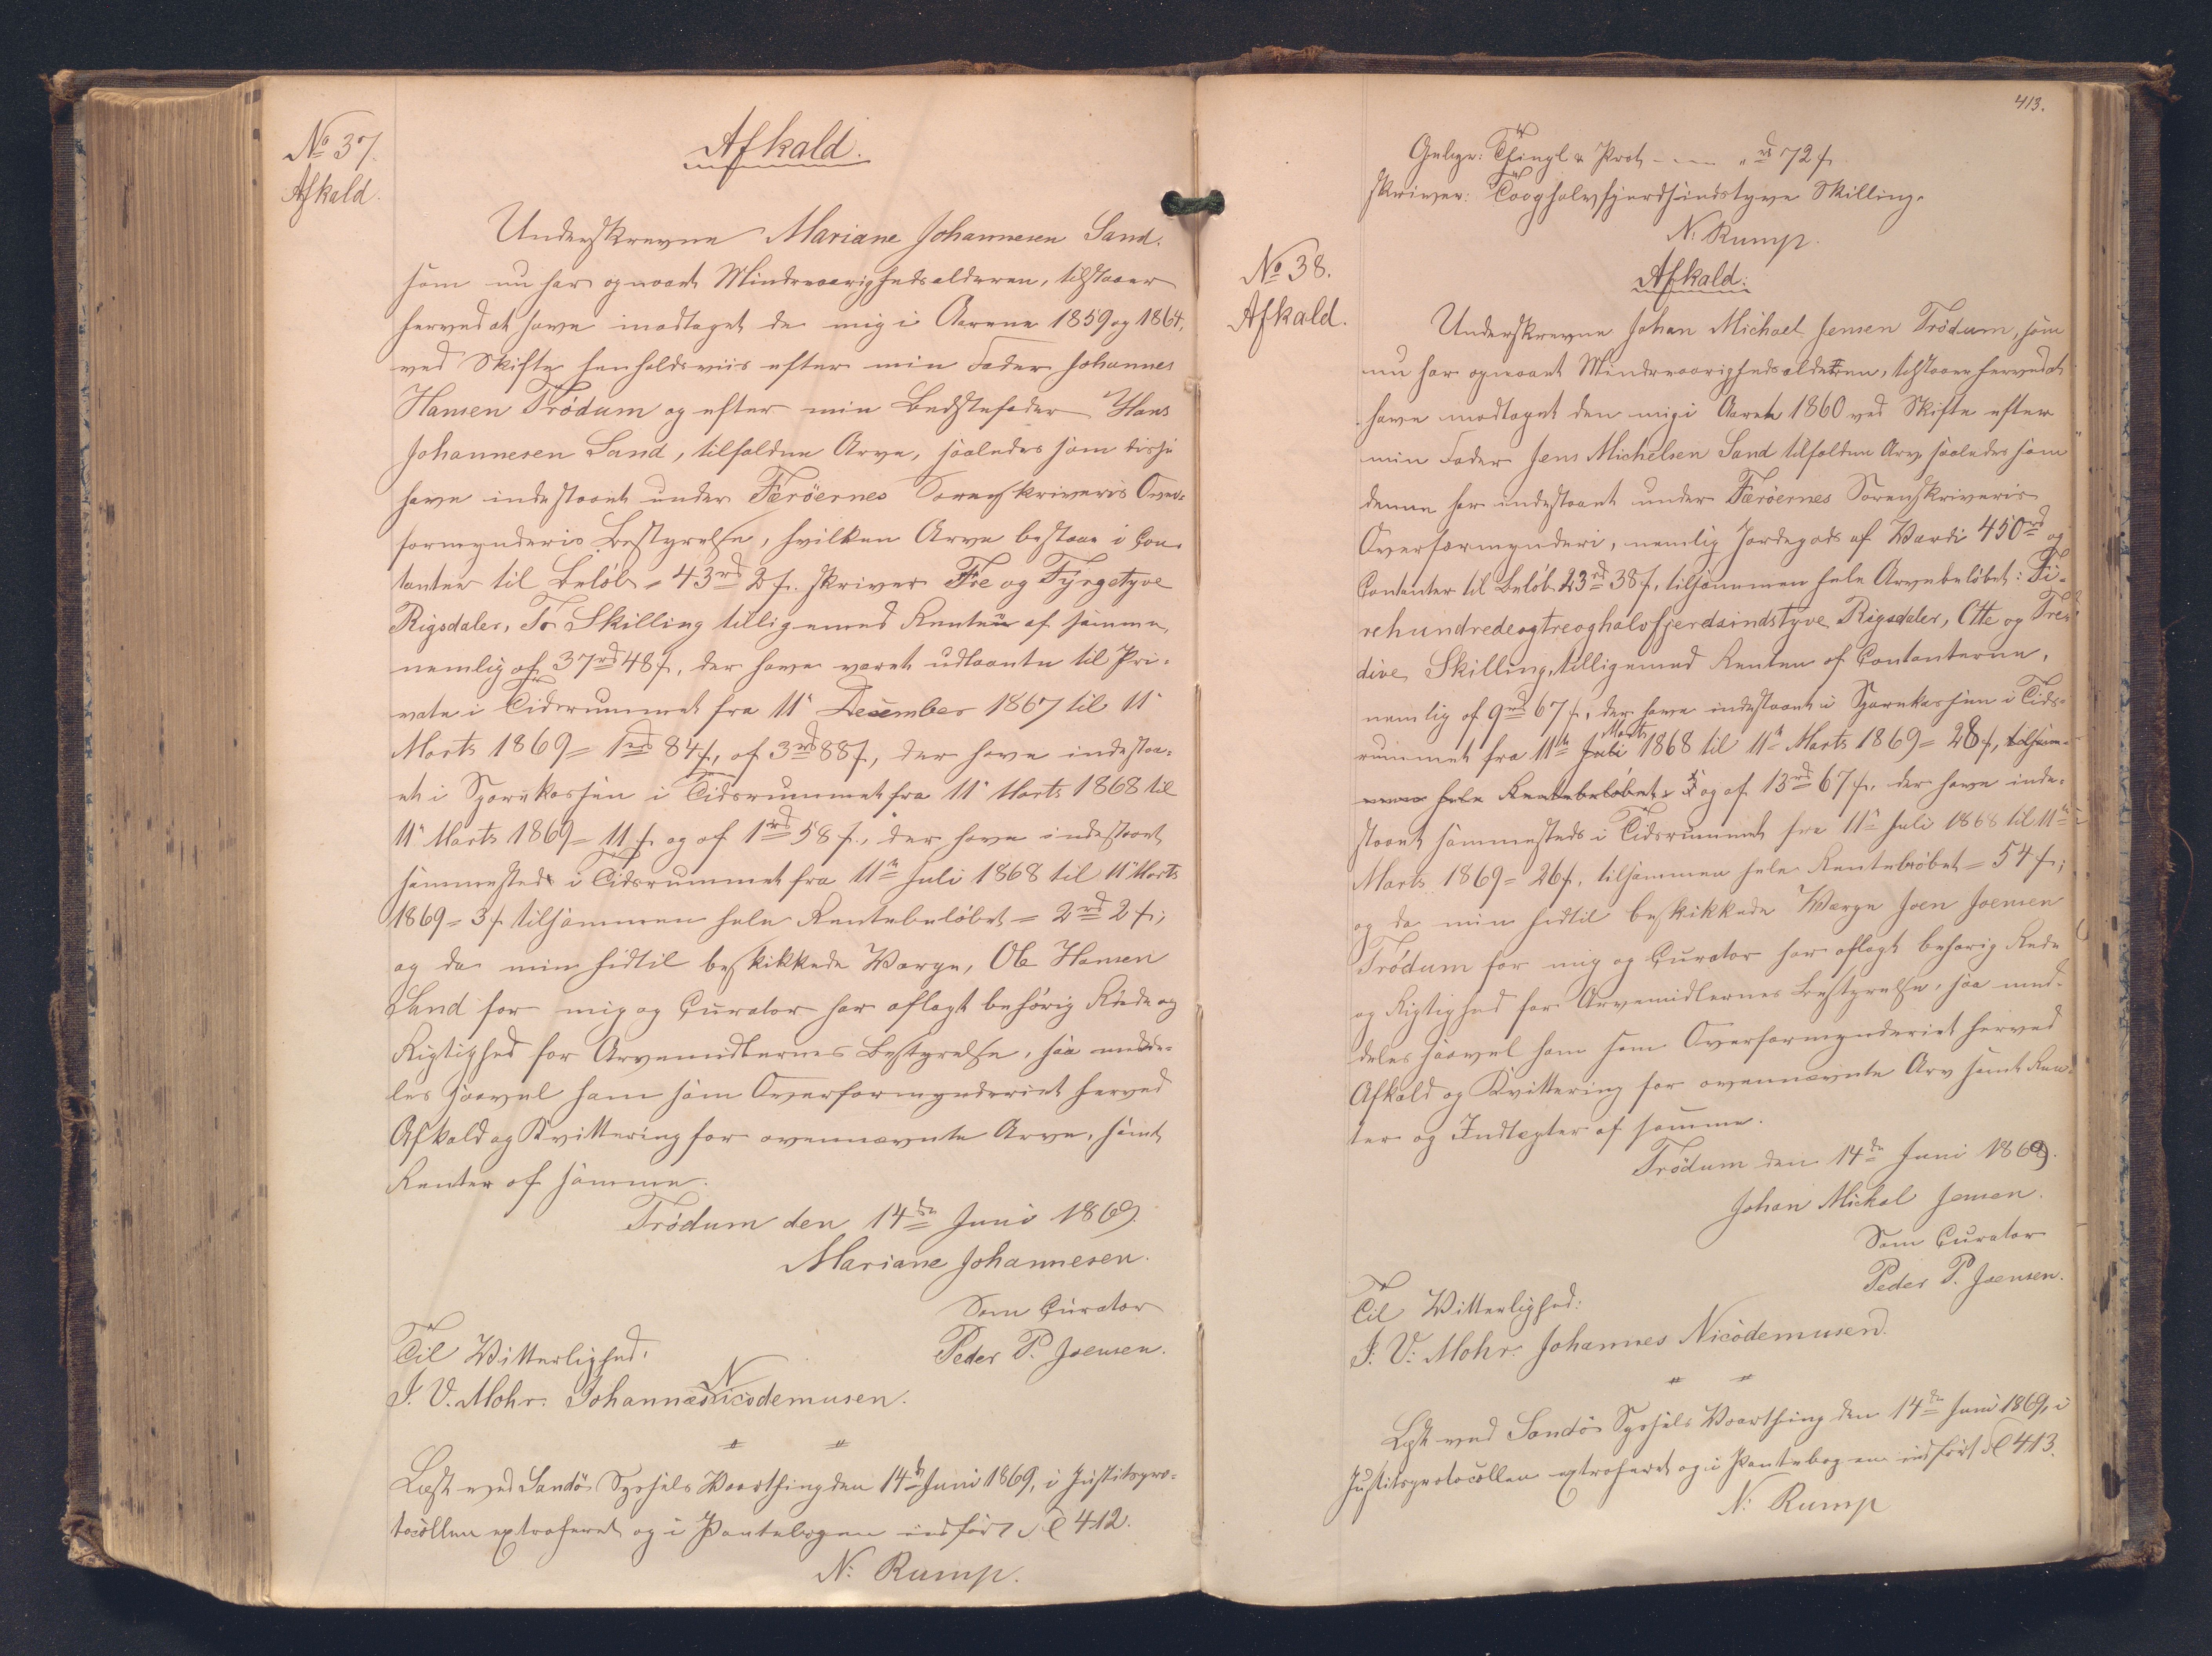 No 37.
Afkald.
Afkald.
Underskrevne Mariane Johannesen Sand,
som nu har opnaaet Mindreaarighedsalderen, tilstaaer
herved at have modtaget de mig i Aarene 1859 og 1864,
ved Skifte henholdsviis efter min Fader Johannes
Hansen Trödum og efter min Bedstefader Hans
Johannesen Sand, tilfaldne Arve, saaledes som disse
have indestaaet under Færöernes Sorenskriveris Over-
formynderis Bestyrelse, hvilken Arve bestaar i Con-
tanter til Beløb = 43 rd 2 s. skriver Tre og Fyrgetyve
Rigsdaler, To Skilling tilligemed Renten af samme,
nemlig af 37 rd 48 s, der have været udlaante til Pri-
vate i Tidsrummet fra 11 December 1867 til 11
Marts 1869 = 1 rd 84 s, af 3 rd 88 s, der have indestaa-
et i Sparekassen i Tidsrummet fra 11 Marts 1868 til
11 Marts 1869 = 11 s og af 1 rd 58 s., der have indestaaet
sammesteds i Tidsrummet fra 11te Juli 1868 til 11 Marts
1869 = 3 s tilsammen hele Rentebeløbet = 2 rd 2 s;
og da min hidtil beskikkede Værge, Ole Hansen
Sand for mig og Curator har aflagt behørig Rede og
Rigtighed for Arvemidlernes Bestyrelse, saa medde-
les saavel ham som Overformynderiet herved
Afkald og Kvittering for ovennævnte Arve, samt
Renter af samme.
Trödum den 14de Juni 1869.
Mariane Johannesen.
Som Curator
Peder P. Joensen.
Til Vitterlighed:
J. V. Mohr. Johannes Nicodemusen.
Læst ved Sandö Syssels Vaarthing den 14de Juni 1869, i Justitspro-
tocollen extraheret og i Pantebogen indført fol 412.
N: Rump.
413.
Gebyr: Thingl & Prot - " rd 72 s
skriver: Tooghalvfjerdsindstyve Skilling.
N. Rump.
No 38.
Afkald.
Afkald.
Underskrevne Johan Michael Jensen Trödum, som
nu har opnaaet Mindreaarighedsalderen, tilstaaer herved at
have modtaget den mig i Aaret 1860 ved Skifte efter
min Fader Jens Michelsen Sand tilfaldne Arv saaledes som
denne har indestaaet under Færöernes Sorenskriveris
Overformynderi, nemlig Jordegods af Værdi 450 rd og
Contanter til Beløb 23 rd 38 s, tilsammen hele Arvebeløbet: Fi-
rehundredeogtreoghalvfjerdsindstyve Rigsdaler, Otte og Tre-
dive Skilling, tilligemed Renten af Contanterne,
nemlig af 9 rd 67 s, der have indestaaet i Sparekassen i Tids-
rummet fra 11te Juli Marts 1868 til 11te Marts 1869 = 28 s, tilsam-
men hele Rentebeløbet og af 13 rd 67 s, der have inde-
staaet sammesteds i Tidsrummet fra 11te Juli 1868 til 11te
Marts 1869 = 26 s. tilsammen hele Rentebeløbet = 54 s;
og da min hidtil beskikkede Værge Joen Joensen
Trödum for mig og Curator har aflagt behørig Rede
og Rigtighed for Arvemidlernes Bestyrelse, saa med-
deles saavel ham som Overformynderiet herved
Afkald og Kvittering for ovennævnte Arv samt Ren-
ter og Indtægter af samme.
Trödum den 14de Juni 1869.
Johan Mickal Jensen.
Som Curator
Peder P. Joensen.
Til Vitterlighed:
J. V. Mohr. Johannes Nicodemusen.
Læst ved Sandö Syssels Vaarthing den 14de Juni 1869, i
Justitsprotocollen extraheret og i Pantebogen indført fol 413.
N: Rump